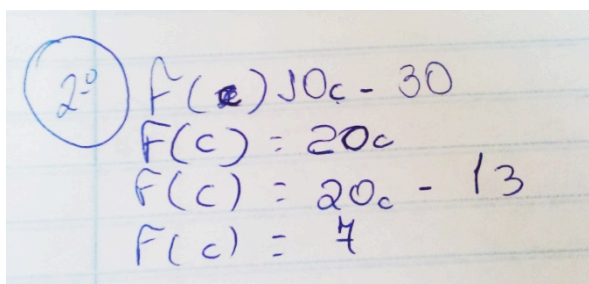 2º F(c) 10c - 30
F(c) = 20c
F(c) = 20c - 13
F(c) = 7